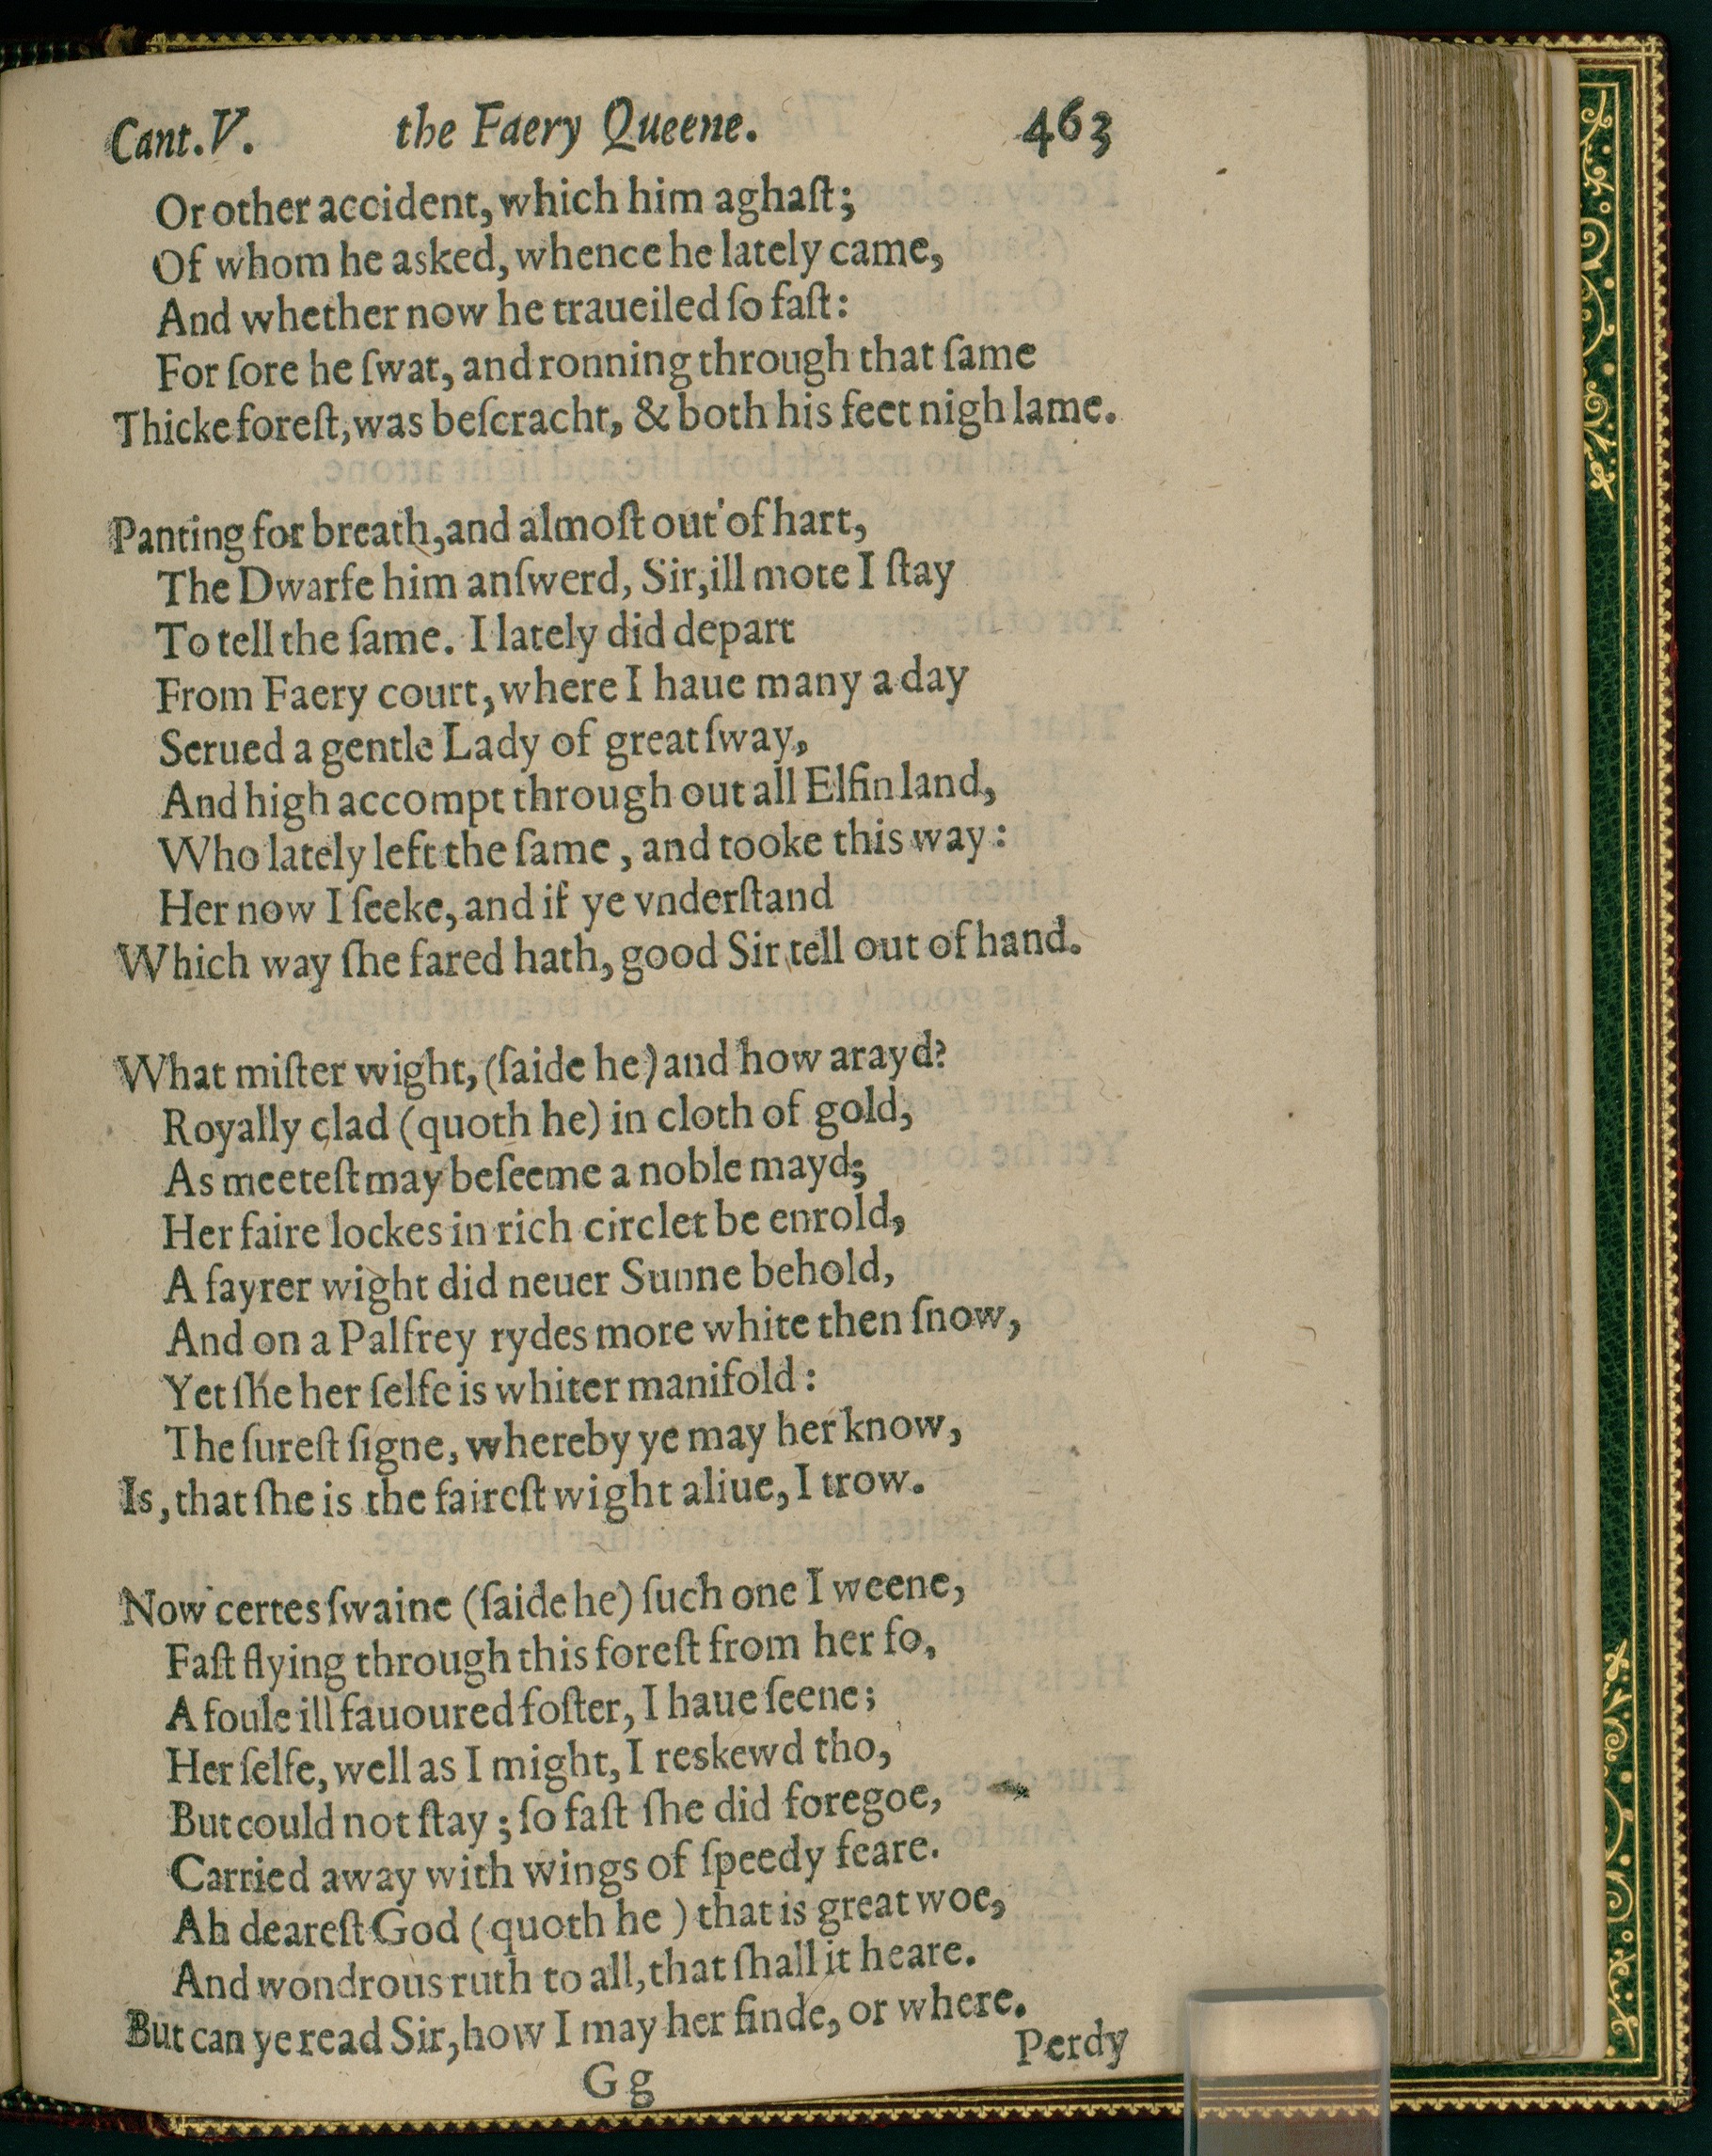 Cant.V. the Faery Queene. 463
Or other accident, which him aghaſt;
Of whom he asked, whence he lately came,
And whether now he traueiled ſo faſt:
For ſore he ſwat, and ronning through that ſame
Thicke foreſt, was beſcracht, & both his feet nigh lame.

Panting for breath, and almoſt out of hart,
The Dwarfe him anſwerd, Sir, ill mote I ſtay
To tell the ſame. I lately did depart
From Faery court, where I haue many a day
Serued a gentle Lady of great ſway,
And high accompt through out all Elfin land,
Who lately left the ſame, and tooke this way:
Her now I ſeeke, and if ye vnderſtand
Which way ſhe fared hath, good Sir tell out of hand.

What miſter wight, (ſaide he) and how arayd?
Royally clad (quoth he) in cloth of gold,
As meeteſt may beſeeme a noble mayd;
Her faire lockes in rich circlet be enrold,
A fayrer wight did neuer Sunne behold,
And on a Palfrey rydes more white then ſnow,
Yet ſhe her ſelfe is whiter manifold:
The ſureſt ſigne, whereby ye may her know,
Is, that ſhe is the faireſt wight aliue, I trow.

Now certes ſwaine (ſaide he) ſuch one I weene,
Faſt flying through this foreſt from her fo,
A foule ill fauoured foſter, I haue ſeene;
Her ſelfe, well as I might, I reskewd tho,
But could not ſtay; ſo faſt ſhe did foregoe,
Carried away with wings of ſpeedy feare.
Ah deareſt God (quoth he) that is great woe,
And wondrous ruth to all, that ſhall it heare.
But can ye read Sir, how I may her finde, or where.
Perdy
Gg